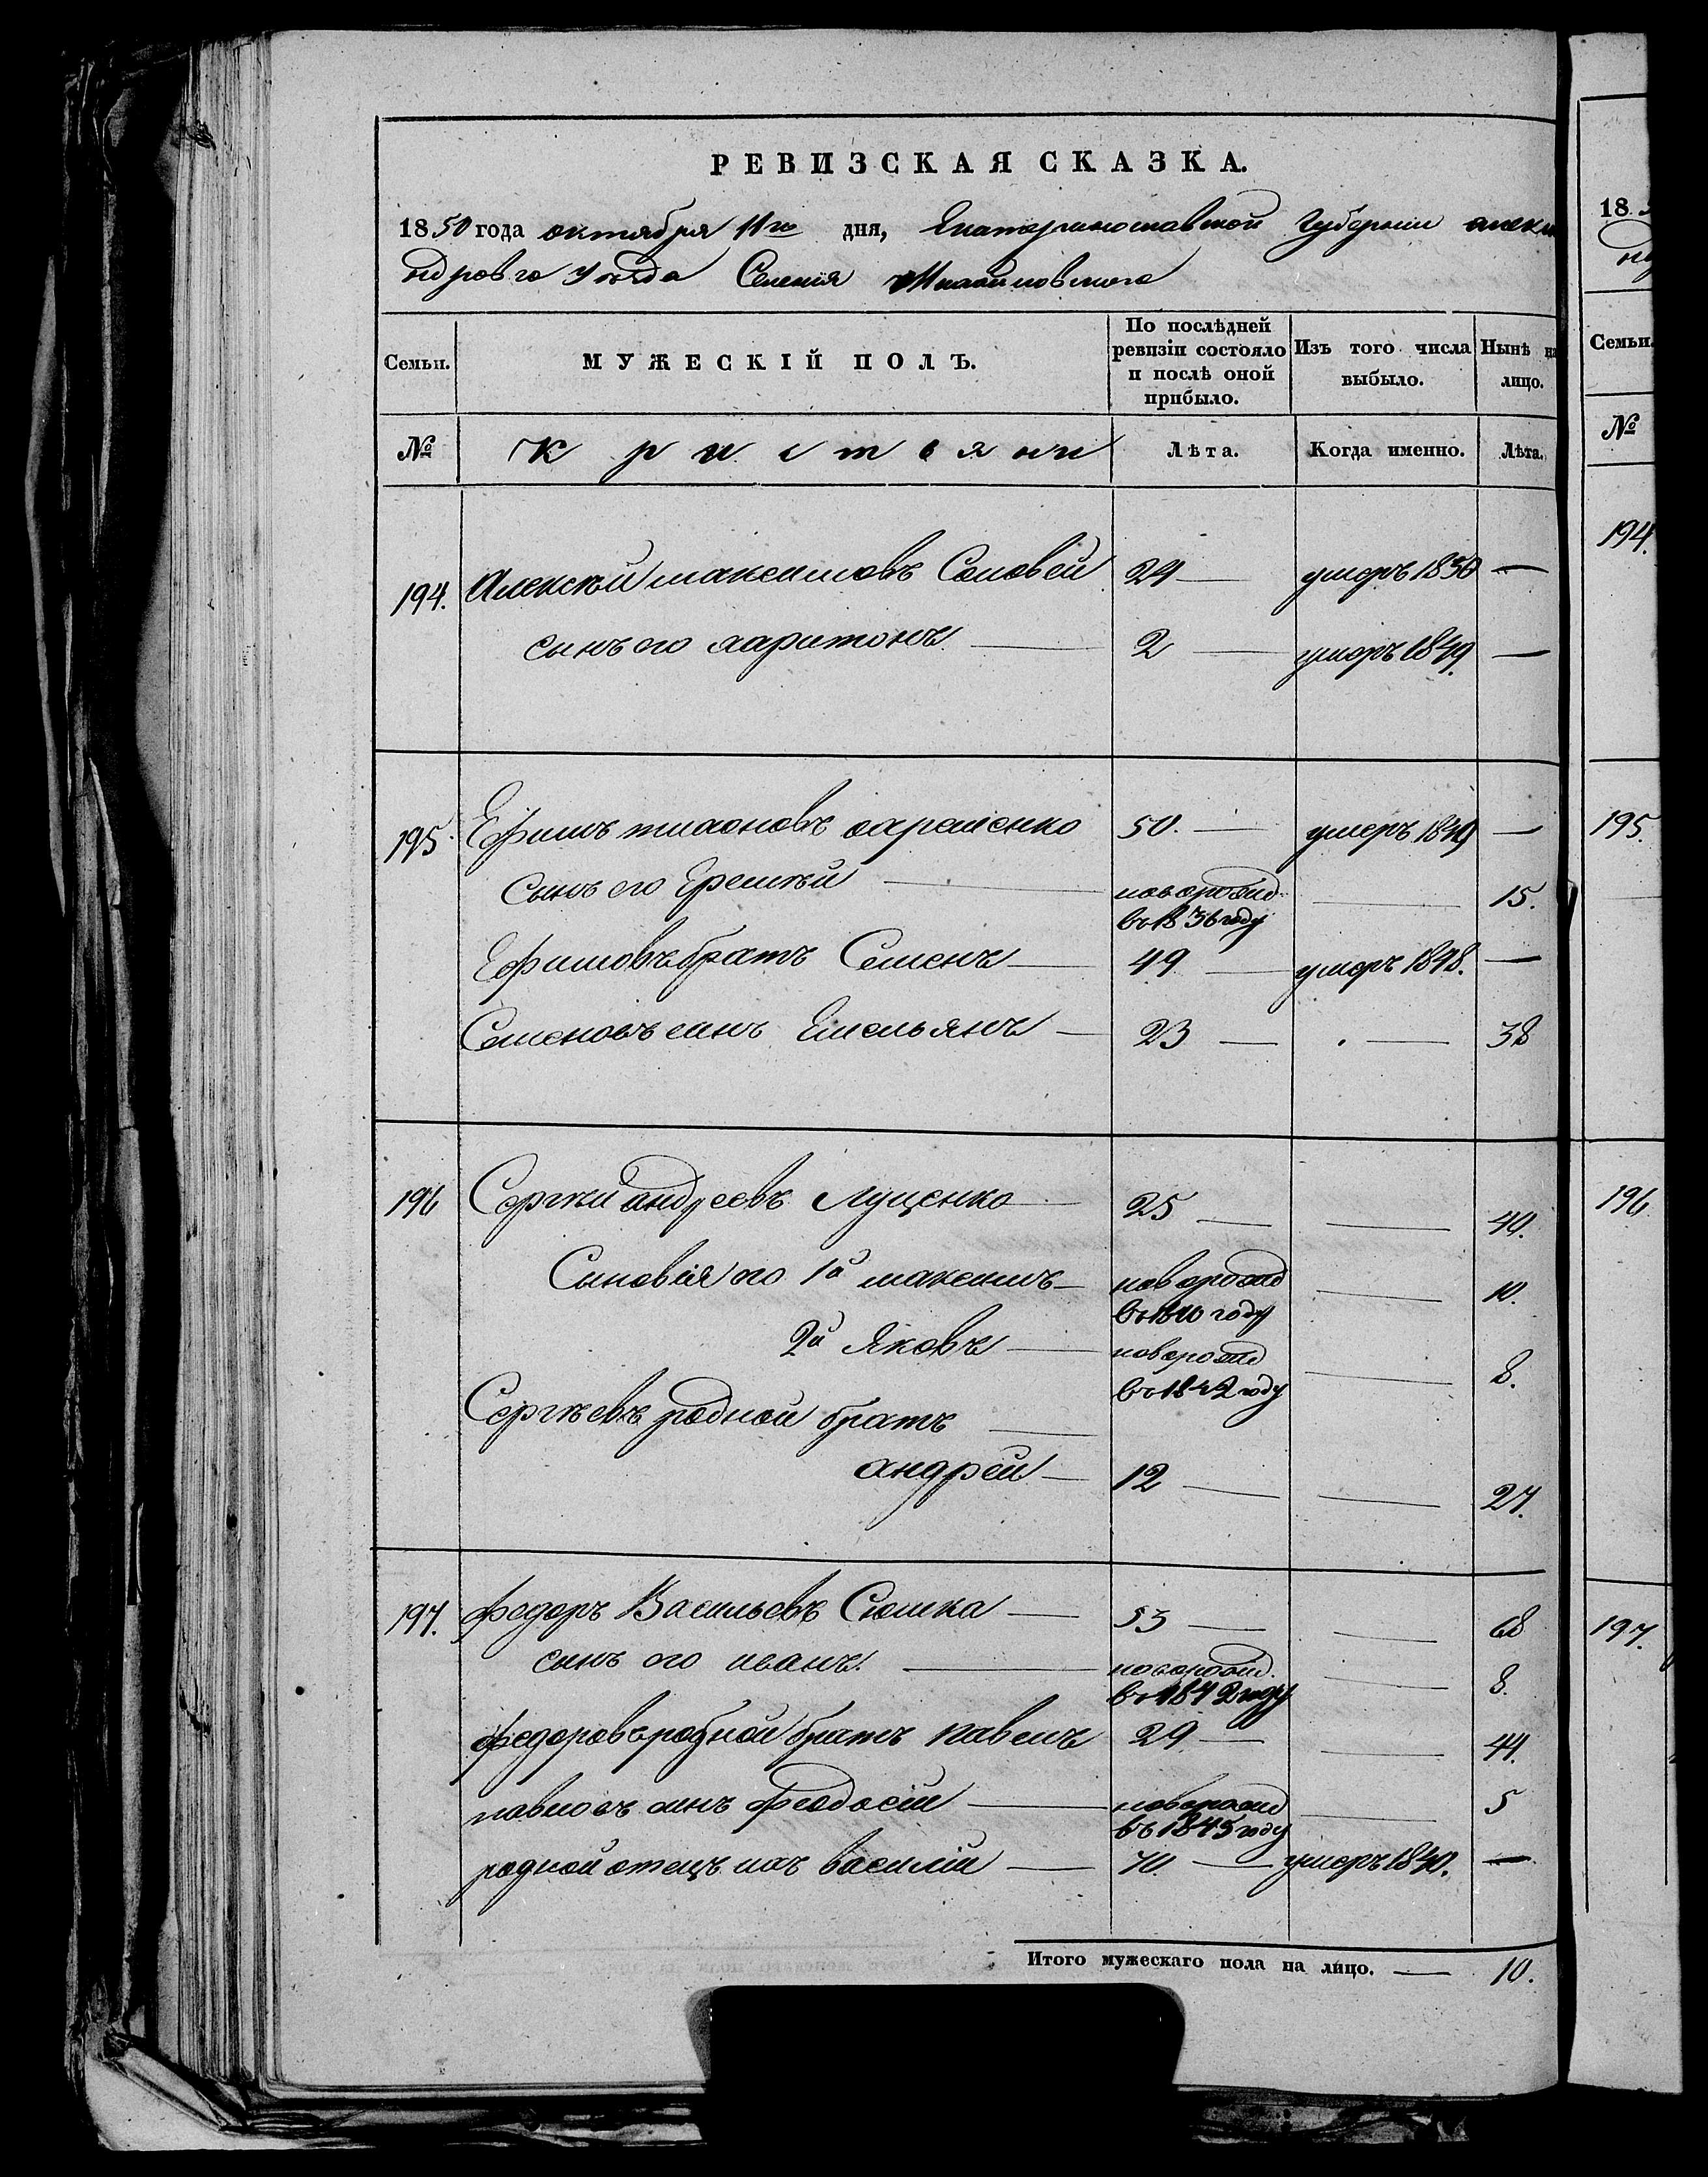 РЕВИЗСКАЯ СКАЗКА.
1850 года октября 11го дня, Екатеринославской Губернии алекса
ндровго Уѣзда Селенія
Семьи.
МУЖЕСКІЙ ПОЛЪ.
По послѣдней ревизіи состояло и послѣ оной прибыло.
Изъ того числа выбыло.
Нынѣ на лицо.
№ Кристяни Лѣта. Когда именно. Лѣта.
194. Алексѣй максимовъ Соловей 24 — умеръ 1850 —
сынъ его харитонъ — 2 — умеръ 1849. —
195. Ефимъ тихоновъ 50. — умеръ 1849 —
Сынъ его Еремѣй — новорожд. въ 1836 году — 15.
Ефимовъ братъ Семенъ — 49 — умеръ 1848. —
Семеновъ синъ Емельянъ — 23 — — 38
196 Сергѣй андреевъ Луценко — 25 — — 40.
Сыновія его 1й максимъ — новорожд въ 1840 году — 10.
2й Яковъ — новорожд въ 1842 году — 8.
Сергѣевъ родной братъ —
андрей — 12 — — 27.
197. федоръ Васильевъ Сюшка — 53 — — 68
сынъ его иванъ. — новорожд. въ 1842 году — 8.
федоровъ родной братъ павелъ 29 — — 44.
павловъ синъ Феодосій — новорожд въ 1845 году — 5
родной отецъ ихъ василій — 70. — умеръ 1840. —
Итого мужескаго пола на лицо. — 10.
18
Семьи.
№
194.
195.
196
197.